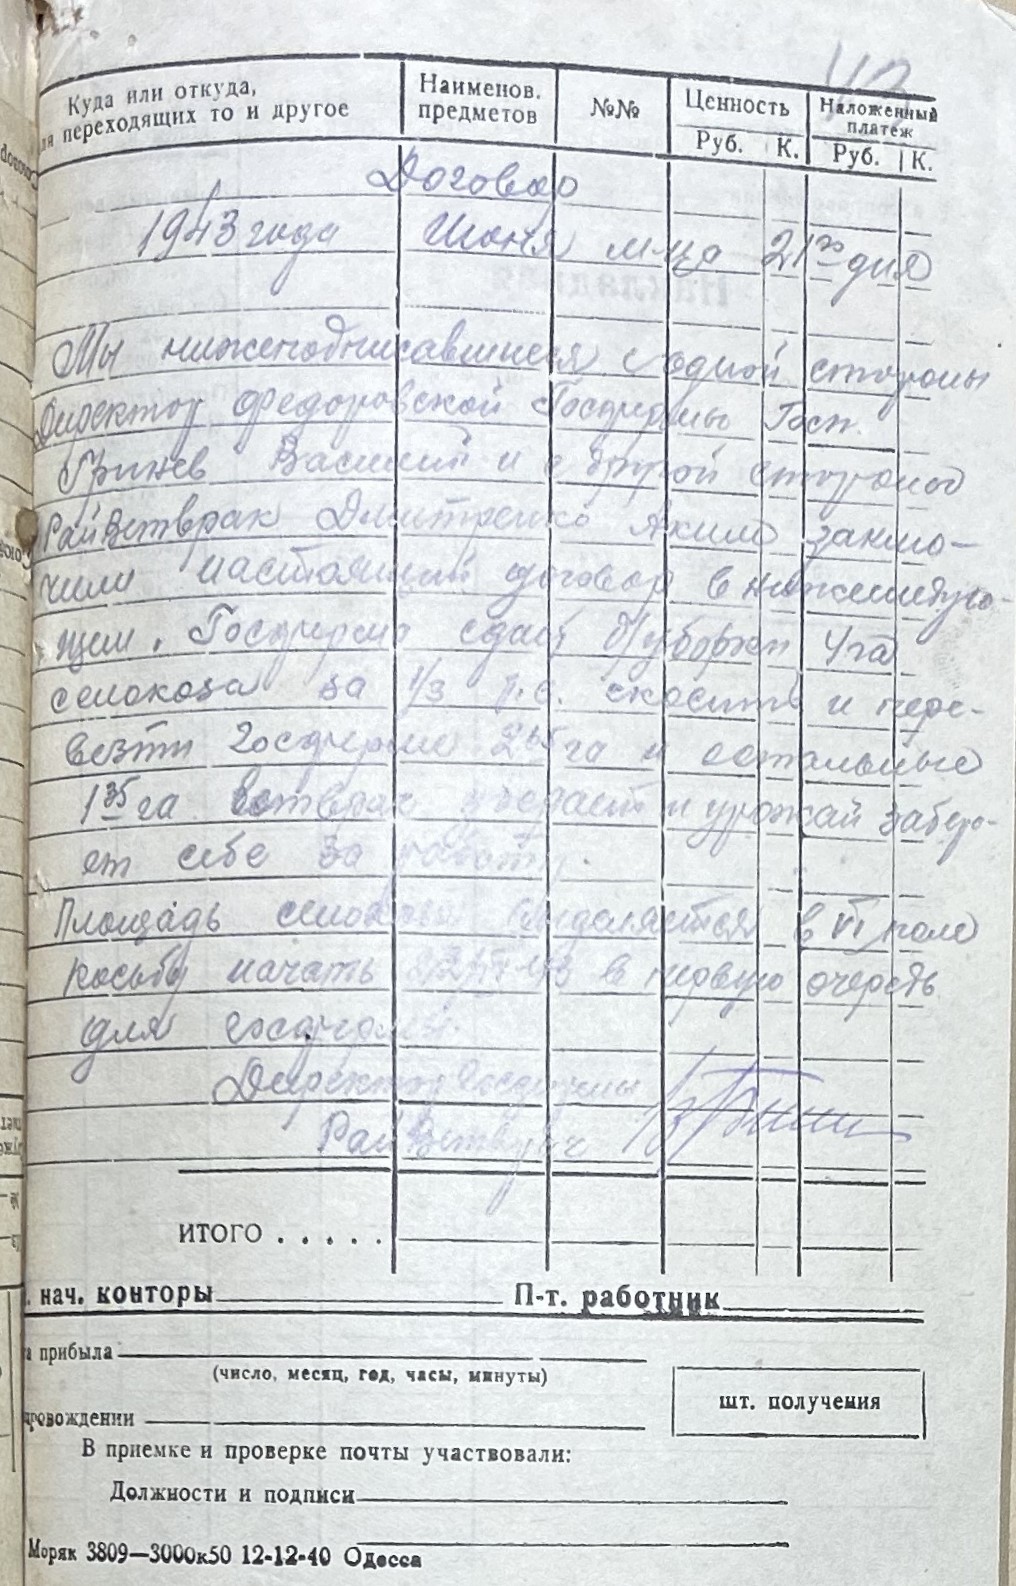 43
Куда или откуда,
для переходящих то и другое
Наименов.
предметов
№№
Ценность
Руб. К.
Наложенный
платеж
Руб. К.
Договор
1943 года Июня м-ца 21го дня
Мы нижеподписавшиеся с одной стороны
Директор Федоровской Госфермы Госп.
Гринев Василий и с другой стороны
РайВетврач Дмитренко Яким заклю-
чили настоящий договор в нижеследую-
щем. Госферма сдаёт уборки 4 га
сенокоса за 1/3 т.е. скосить и пере-
везти Госферме 2 65 га и остальные
1 35 га Ветврач убирает и урожай забир-
ет себе за работу.
Площадь сенокоса выделяется в VI поле
косьбу начать в первую очередь
для госфермы.
Директор Госфермы
РайВетврач
ИТОГО . . . . .
нач. конторы П-т. работник
прибыла
(число, месяц, год, часы, минуты)
шт. получения
провождении
В приемке и проверке почты участвовали:
Должности и подписи
Моряк 3809—3000к50 12-12-40 Одесса